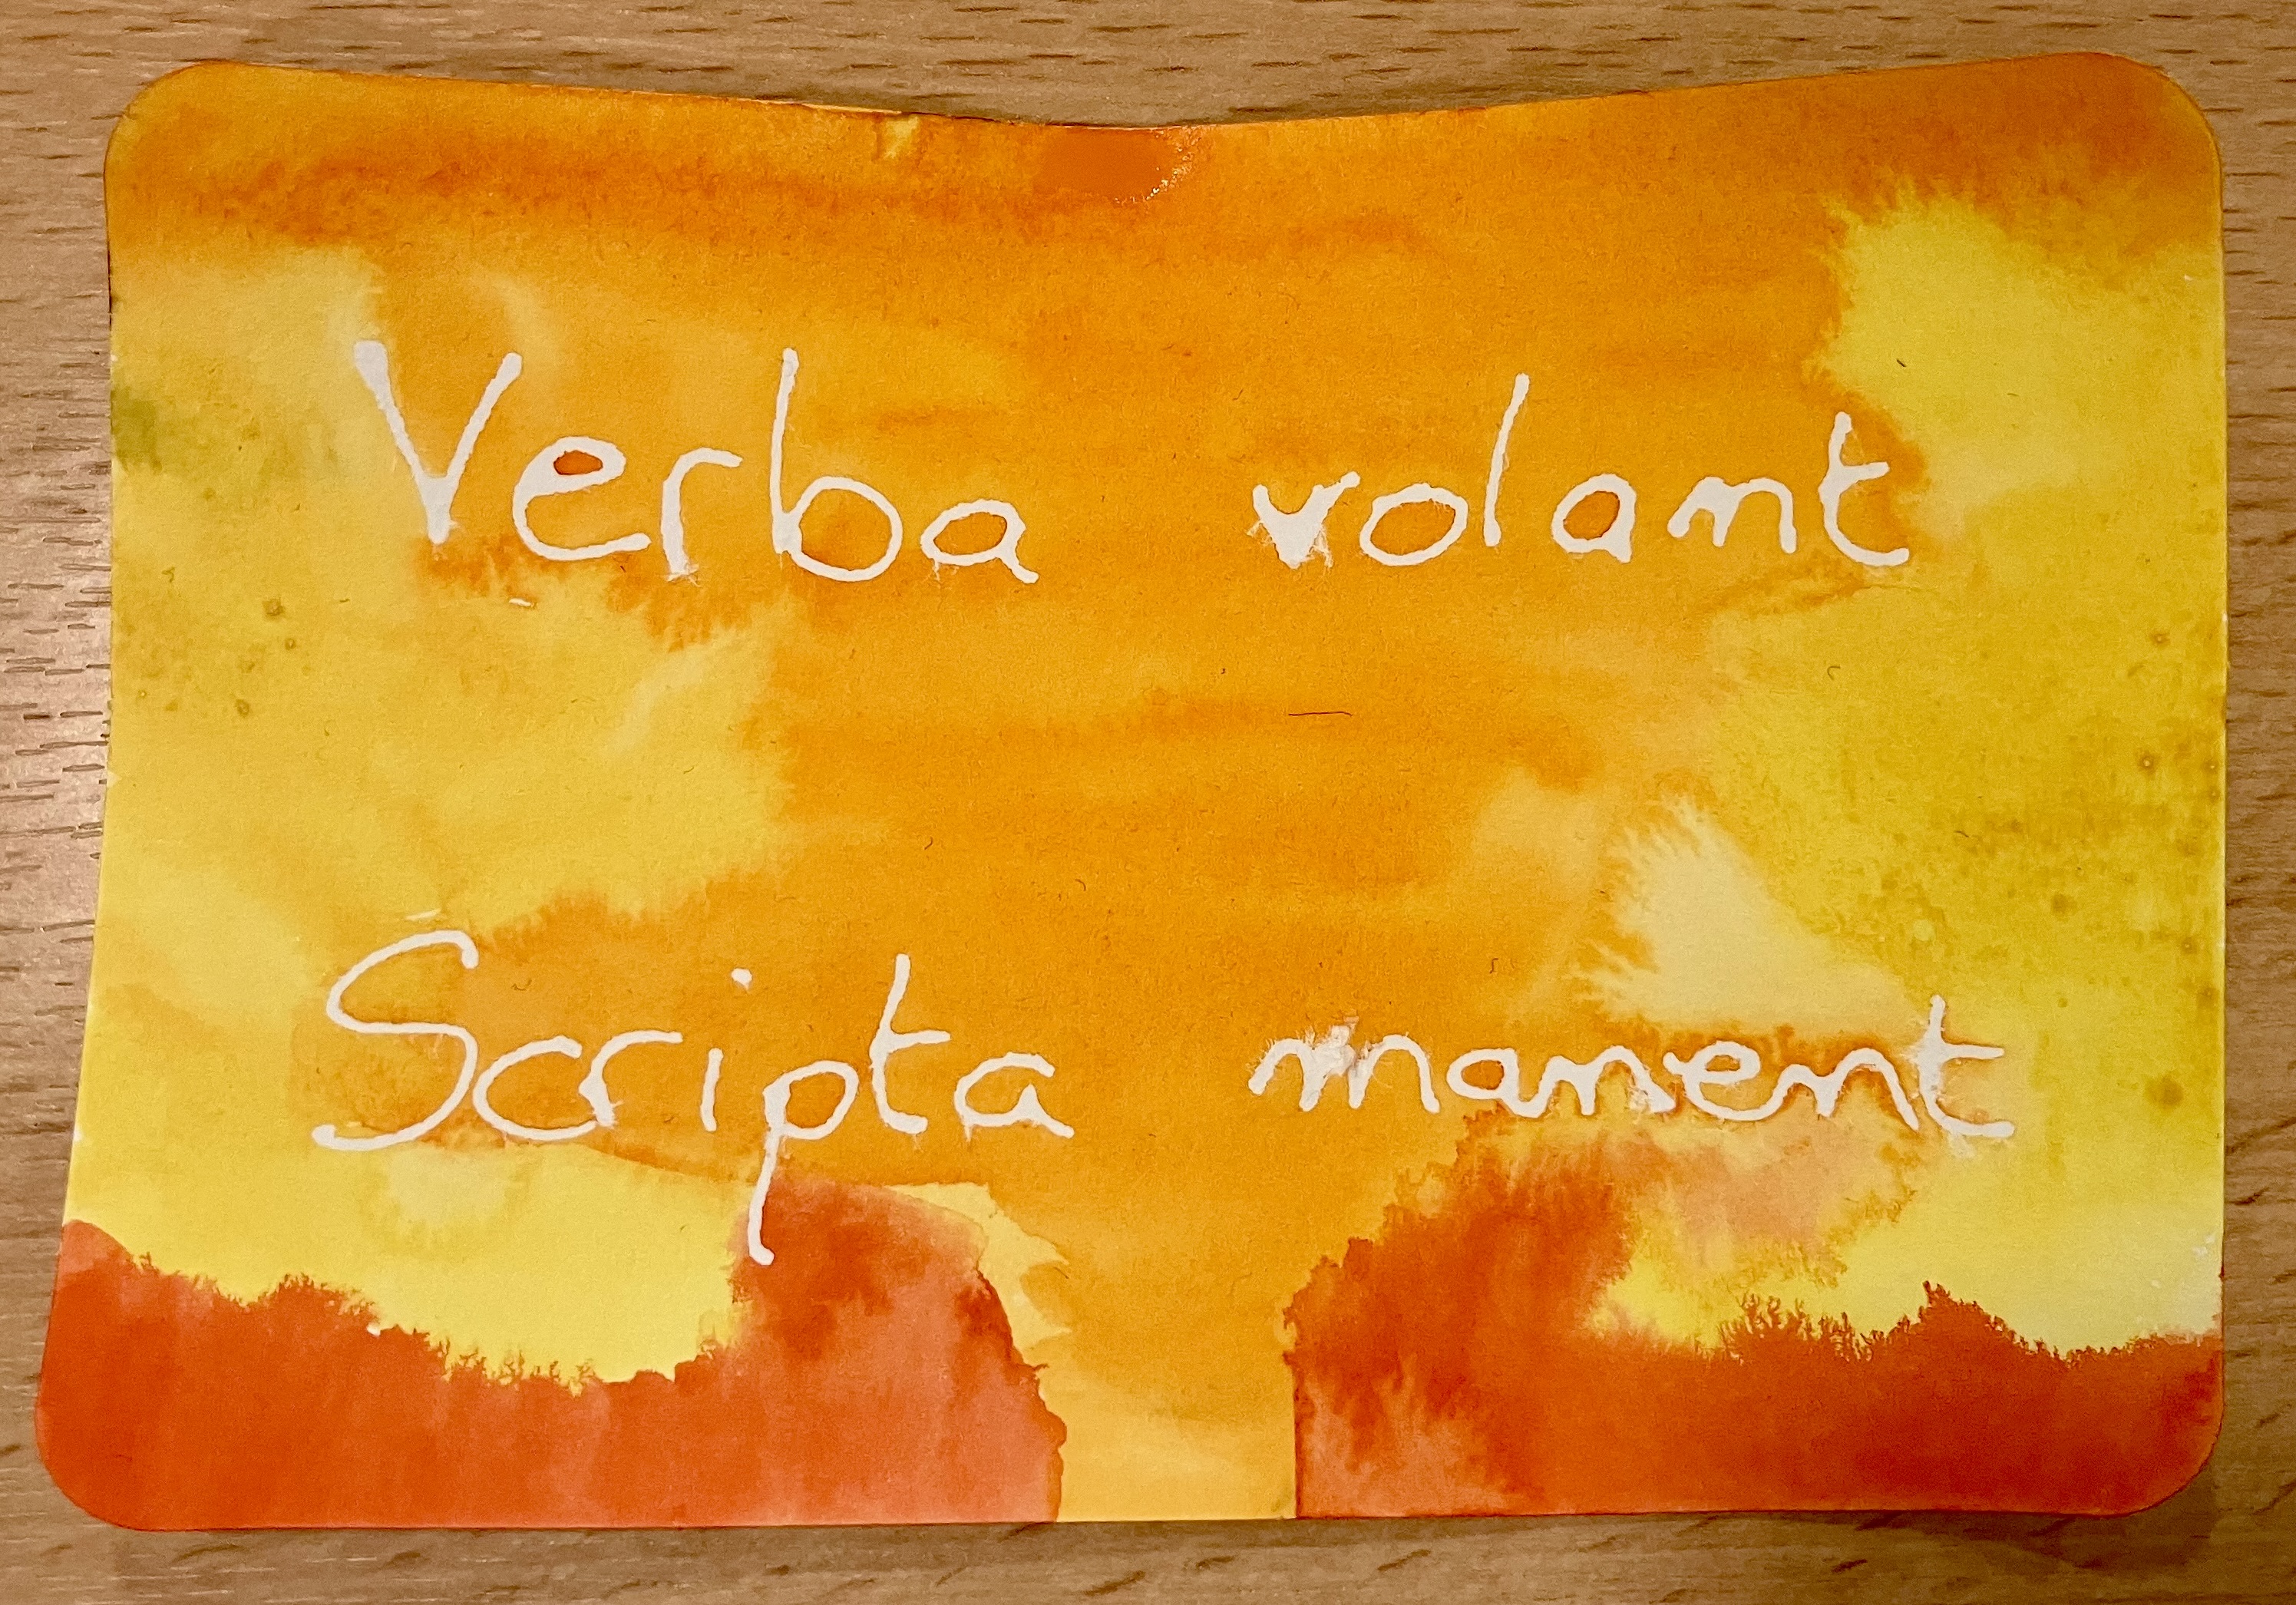 Verba volant
Scripta manent